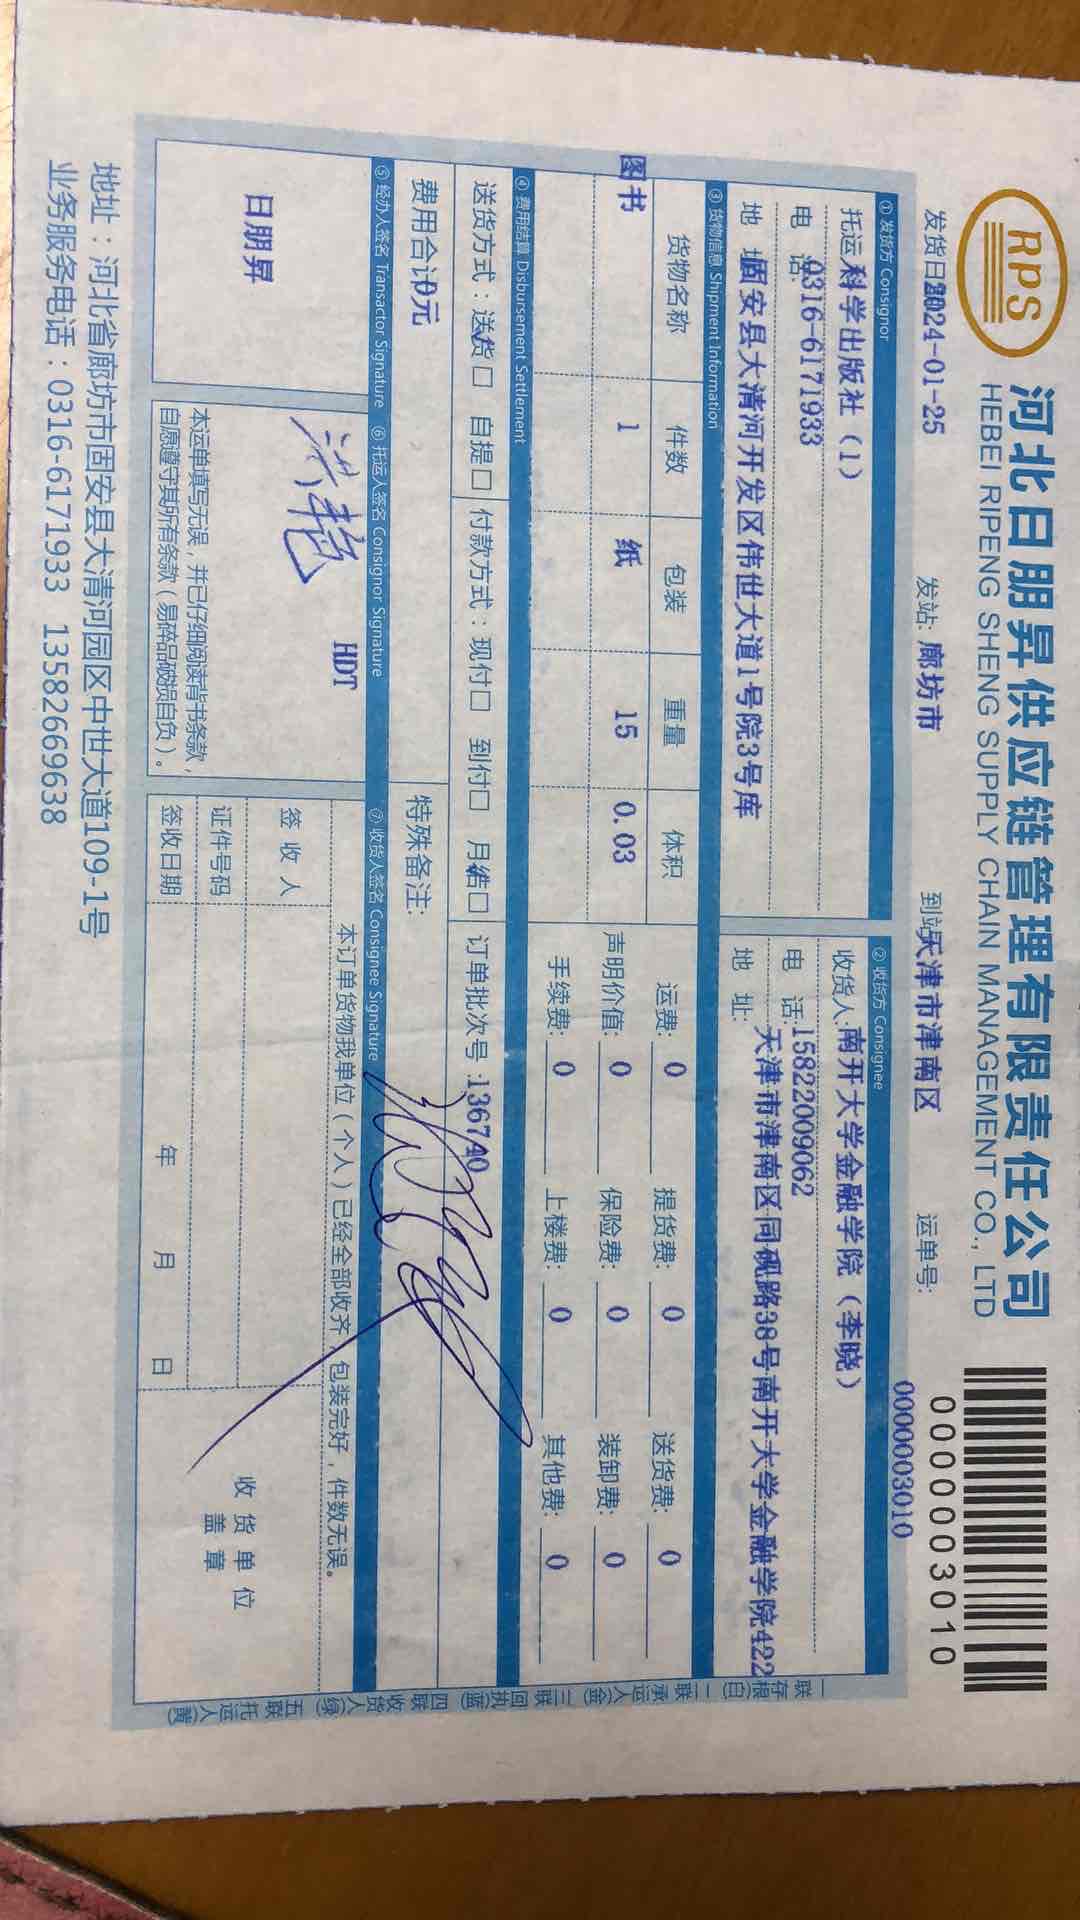 RPS
河北日朋昇供应链管理有限责任公司
HEBEI RIPENG SHENG SUPPLY CHAIN MANAGEMENT CO., LTD
0000003010
0000003010
发货日 2024-01-25 发站: 廊坊市 到站 天津市津南区 运单号:
① 发货方 Consignor
托运 科学出版社(1)
电 话 0316-6171933
地 固安县大清河开发区伟世大道1号院3号库
② 收货方 Consignee
收货人: 南开大学金融学院(李晓)
电 话: 15822009062
地 址: 天津市津南区同砚路38号南开大学金融学院422
③ 货物信息 Shipment Information
货物名称 件数 包装 重量 体积
图书 1 纸 15 0.03
运费: 0 提货费: 0 送货费: 0
声明价值: 0 保险费: 0 装卸费: 0
手续费: 0 上楼费: 0 其他费: 0
④ 费用结算 Disbursement Settlement
送货方式: 送货□ 自提□ 付款方式: 现付□ 到付□ 月结□ 订单批次号: 136740
费用合计 0元 特殊备注:
⑤ 经办人签名 Transactor Signature ⑥ 托运人签名 Consignor Signature ⑦ 收货人签名 Consignee Signature
日朋昇
HDT
本运单填写无误,并已仔细阅读背书条款,
自愿遵守其所有条款(易碎品破损自负)。
本订单货物我单位(个人)已经全部收齐,包装完好,件数无误。
签收人
证件号码
签收日期 年 月 日
收货单位
盖章
一联存根(白) 二联承运人(金) 三联回执(蓝) 四联收货人(绿) 五联托运人(黄)
地址:河北省廊坊市固安县大清河园区中世大道109-1号
业务服务电话:0316-6171933 13582669638